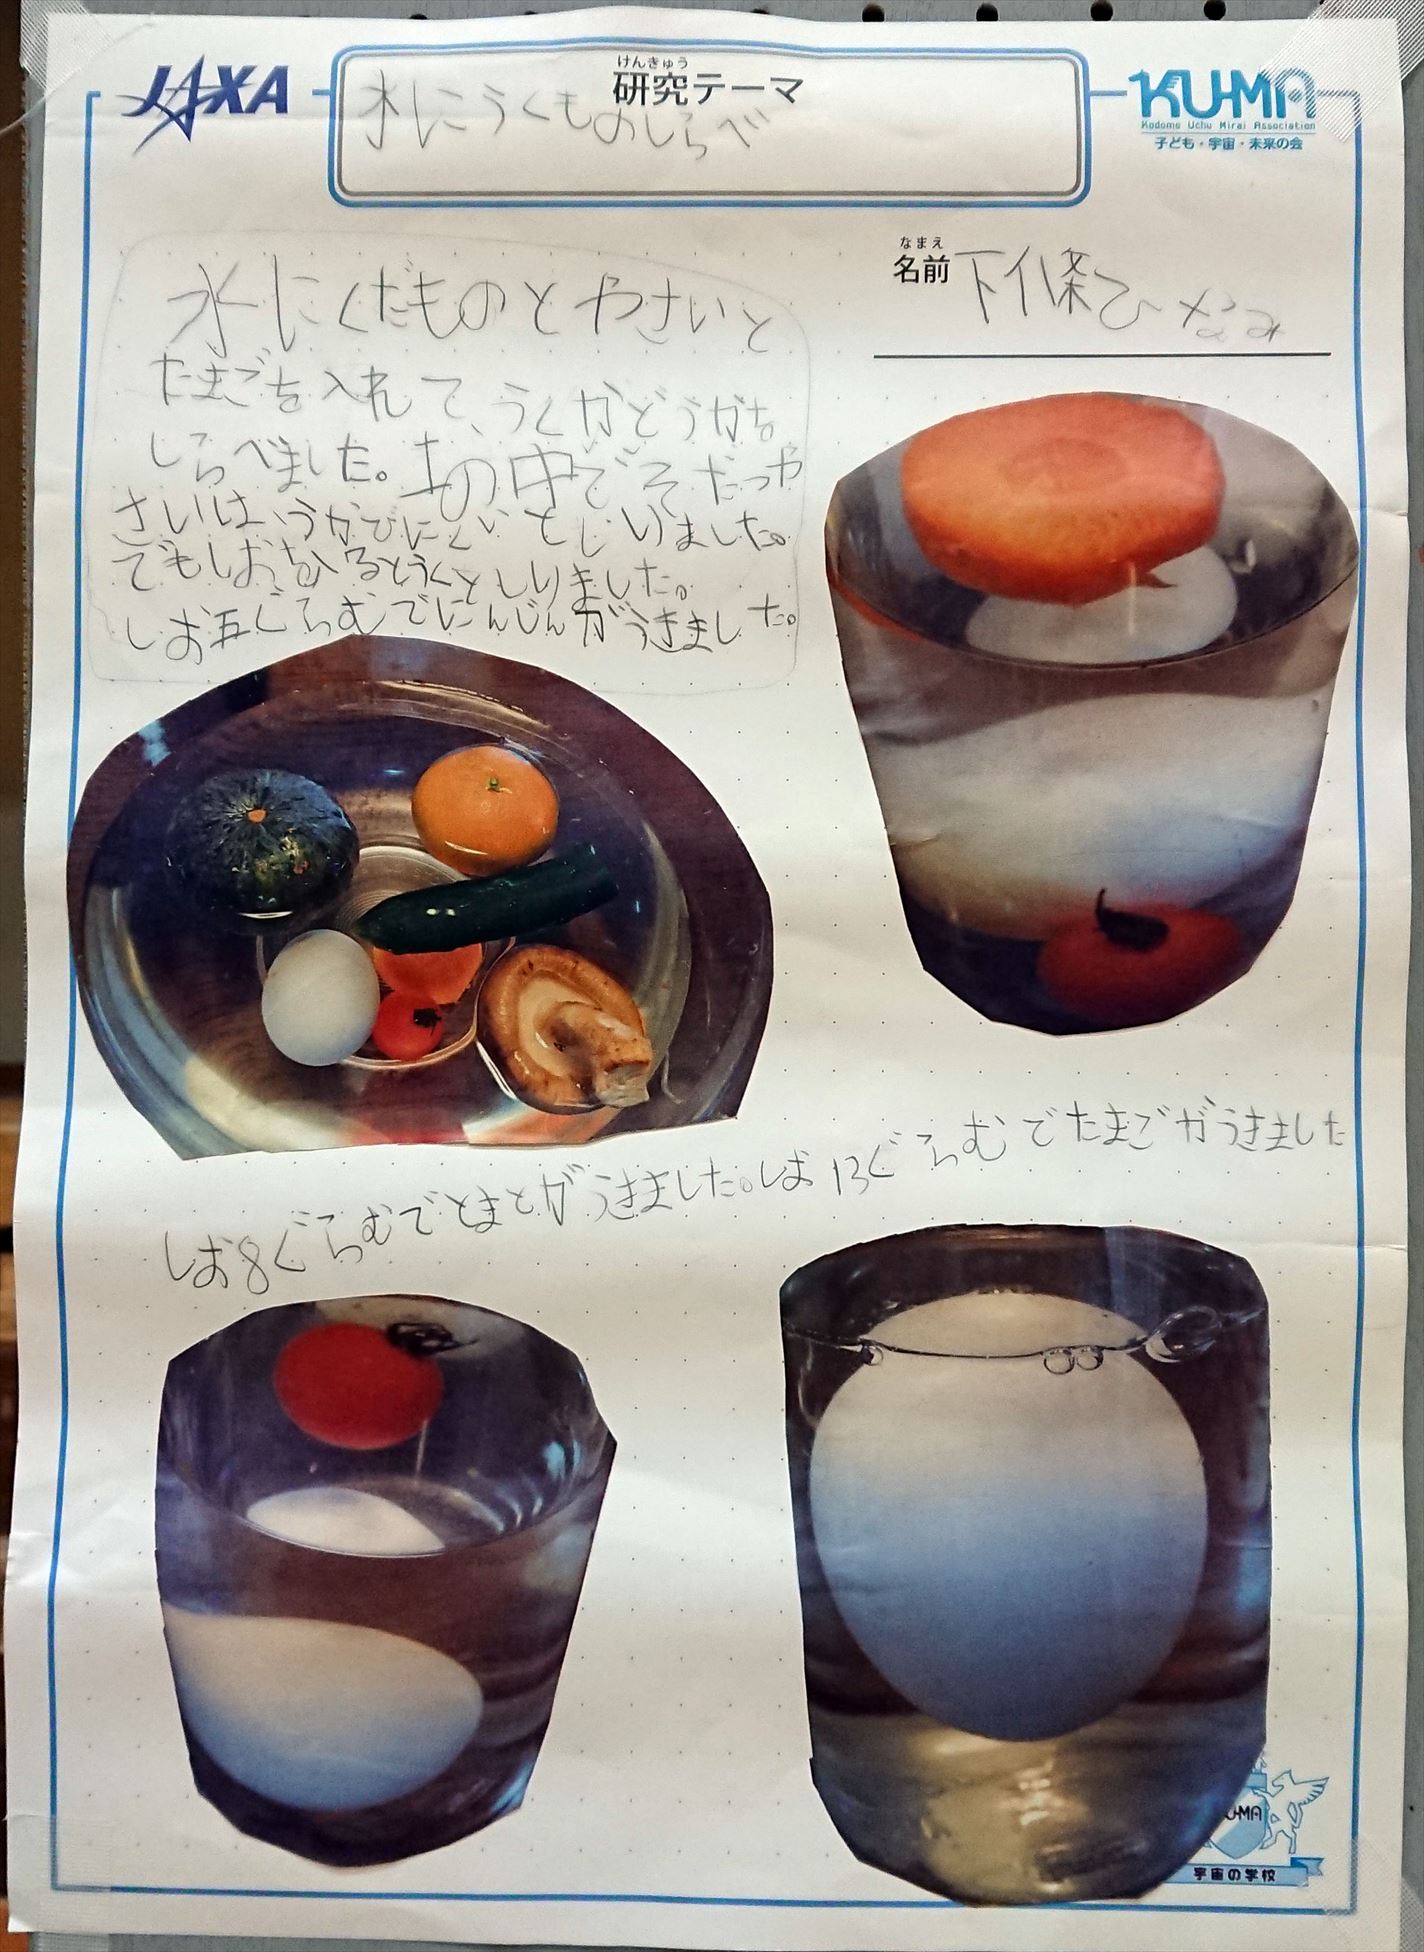 JAXA
けんきゅう
研究テーマ
水にうくものしらべ
KU-MA
Kodomo Uchu Mirai Association
子ども・宇宙・未来の会
なまえ
名前 下條ひなみ
水にくだものとやさいと
たまごを入れて、うくかどうかを
しらべました。土の中でそだったや
さいは、うかびにくいとしりました。
でもしおを入るとうくとしりました。
しお五ぐらむでにんじんがうきました。
しお8ぐらむでとまとがうきました。しお13ぐらむでたまごがうきました
U-MA
宇宙の学校